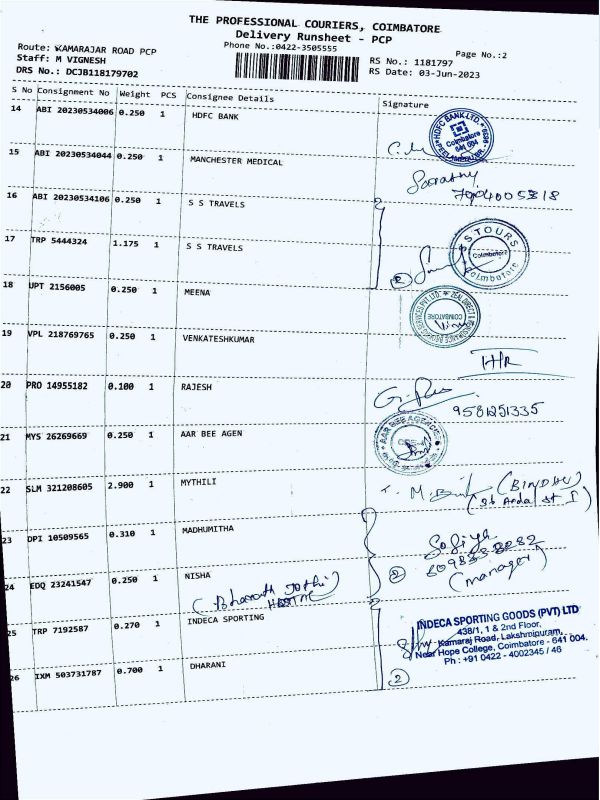 THE PROFESSIONAL COURIERS, COIMBATORE
Delivery Runsheet - PCP
Phone No.:0422-3505555
Page No.:2
Route: KAMARAJAR ROAD PCP
Staff: M VIGNESH
DRS No.: DCJB118179702
RS No.: 1181797
RS Date: 03-Jun-2023
S No Consignment No Weight PCS Consignee Details Signature
14 ABI 20230534006 0.250 1 HDFC BANK
HDFC BANK LTD. Coimbatore 641 004
15 ABI 20230534044 0.250 1 MANCHESTER MEDICAL
16 ABI 20230534106 0.250 1 S S TRAVELS
17 TRP 5444324 1.175 1 S S TRAVELS
2
S S TOURS Coimbatore Coimbatore
18 UPT 2156005 0.250 1 MEENA
COIMBATORE
19 VPL 218769765 0.250 1 VENKATESHKUMAR
H/R
20 PRO 14955182 0.100 1 RAJESH
9581251335
21 MYS 26269669 0.250 1 AAR BEE AGEN
AAR BEE AGENCIES
22 SLM 321208605 2.900 1 MYTHILI
(BINDHU)
23 DPI 10509565 0.310 1 MADHUMITHA
Sofiya
(manager)
24 EDQ 23241547 0.250 1 NISHA
2
(Bharath Jothi)
25 TRP 7192587 0.270 1 INDECA SPORTING
INDECA SPORTING GOODS (PVT) LTD
438/1, 1 & 2nd Floor,
Kamaraj Road, Lakshmipuram,
Near Hope College, Coimbatore - 641 004.
Ph : +91 0422 - 4002345 / 46
26 IXM 503731787 0.700 1 DHARANI
2